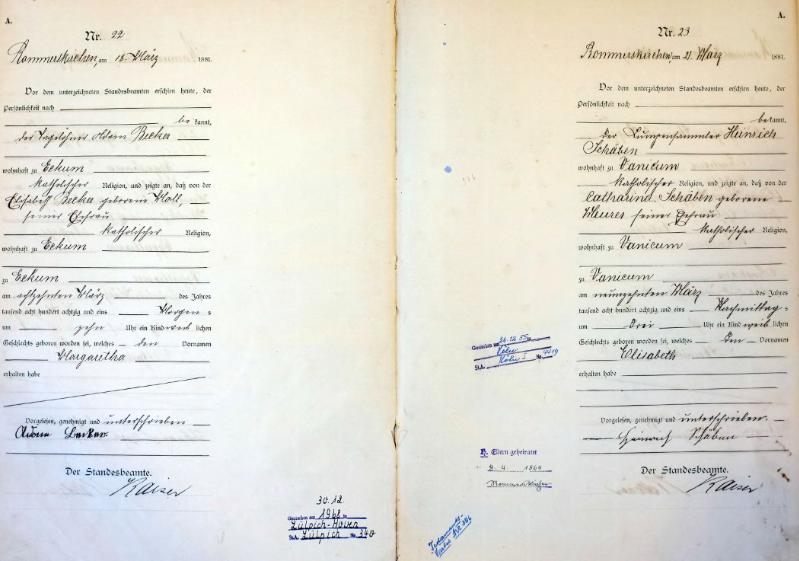 A.
Nr. 22
Rommerskirchen, am 18. März 1881.
Vor dem unterzeichneten Standesbeamten erschien heute, der
Persönlichkeit nach
bekannt,
der Tagelöhner Adam
wohnhaft zu Eckum
katholischer Religion, und zeigte an, daß von der
Elisabeth geborene
seiner Ehefrau
katholischer Religion,
wohnhaft zu Eckum
zu Eckum
am achtzehnten März des Jahres
tausend acht hundert achtzig und eins Morgens
um zehn Uhr ein Kind weiblichen
Geschlechts geboren worden sei, welches den Vornamen
Margaretha
erhalten habe
Vorgelesen, genehmigt und unterschrieben
Adam
Der Standesbeamte.
Kaiser
30.12
Gestorben am 1962 in
Zülpich-Hoven
St.A. Zülpich Nr. 340
A.
Nr. 23
Rommerskirchen, am 21. März 1881.
Vor dem unterzeichneten Standesbeamten erschien heute, der
Persönlichkeit nach
bekannt,
der Lumpensammler Heinrich
Schäben
wohnhaft zu Vanicum
katholischer Religion, und zeigte an, daß von der
Catharina Schäben geborene
Meures seiner Ehefrau
katholischer Religion,
wohnhaft zu Vanicum
zu Vanicum
am neunzehnten März des Jahres
tausend acht hundert achtzig und eins Nachmittag-
um drei Uhr ein Kind weiblichen
Geschlechts geboren worden sei, welches den Vornamen
Elisabeth
erhalten habe
Vorgelesen, genehmigt und unterschrieben
Heinrich Schäben
Der Standesbeamte.
Kaiser
Gestorben am 26.12.55
Köln
St.A. Köln I Nr.
Eltern geheiratet